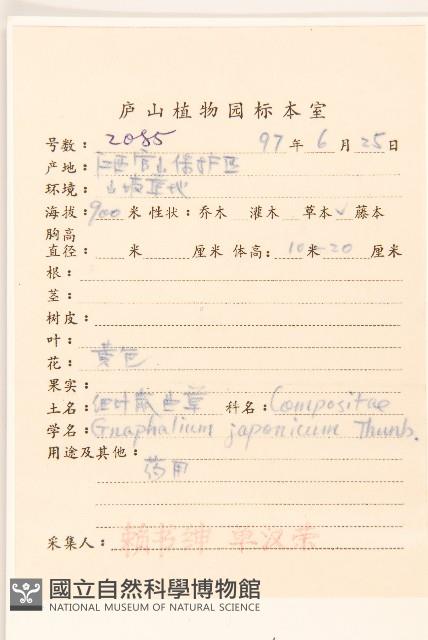 庐山植物园标本室
号数：2085 97年6月25日
产地：江西官山保护区
环境：山坡草地
海拔：900米 性状：乔木 灌木 草本✓藤本
胸高
直径： 米 厘米 体高：10米-20厘米
根：
茎：
树皮：
叶：
花：黄色
果实：
土名：细叶鼠曲草 科名：Compositae
学名：Gnaphalium japonicum Thunb.
用途及其他：
药用
采集人：赖书绅 单汉荣
國立自然科學博物館
NATIONAL MUSEUM OF NATURAL SCIENCE